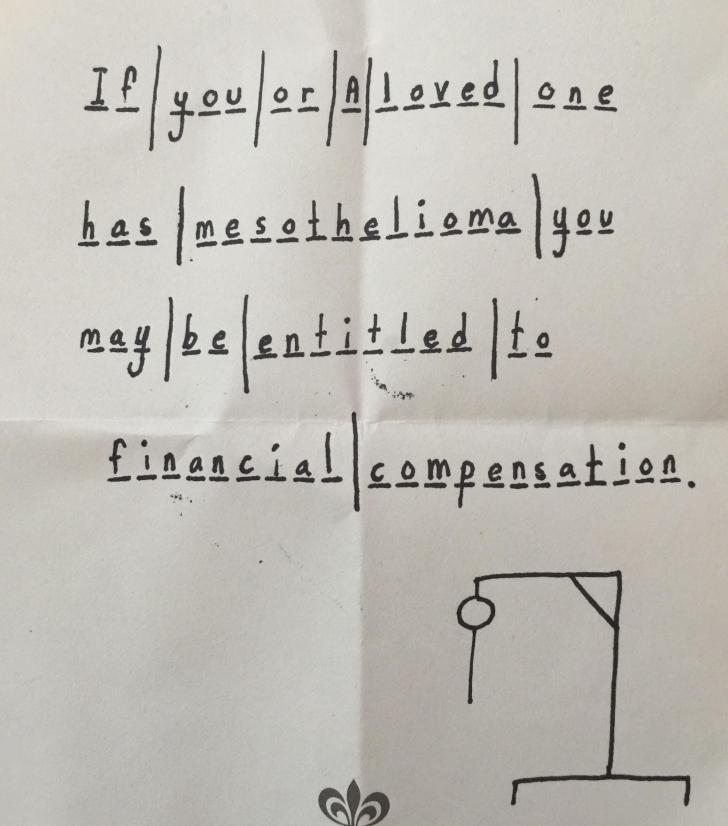 If you or A loved one
has mesothelioma you
may be entitled to
financial compensation.